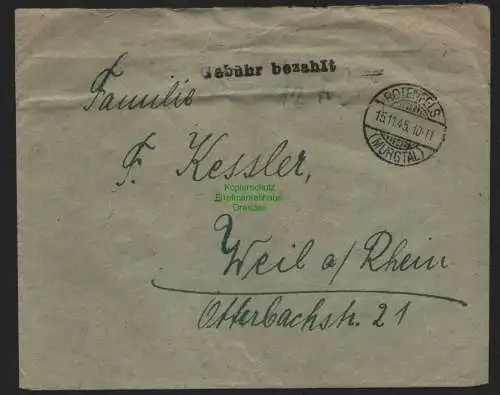 Gebühr bezahlt
Familie
ROTENFELS
15.11.45.10-11
(MURGTAL)
F. Kessler,
Kopierschutz
Briefmarkenhaus
Dresden
Weil a/Rhein
Otterbachstr. 21